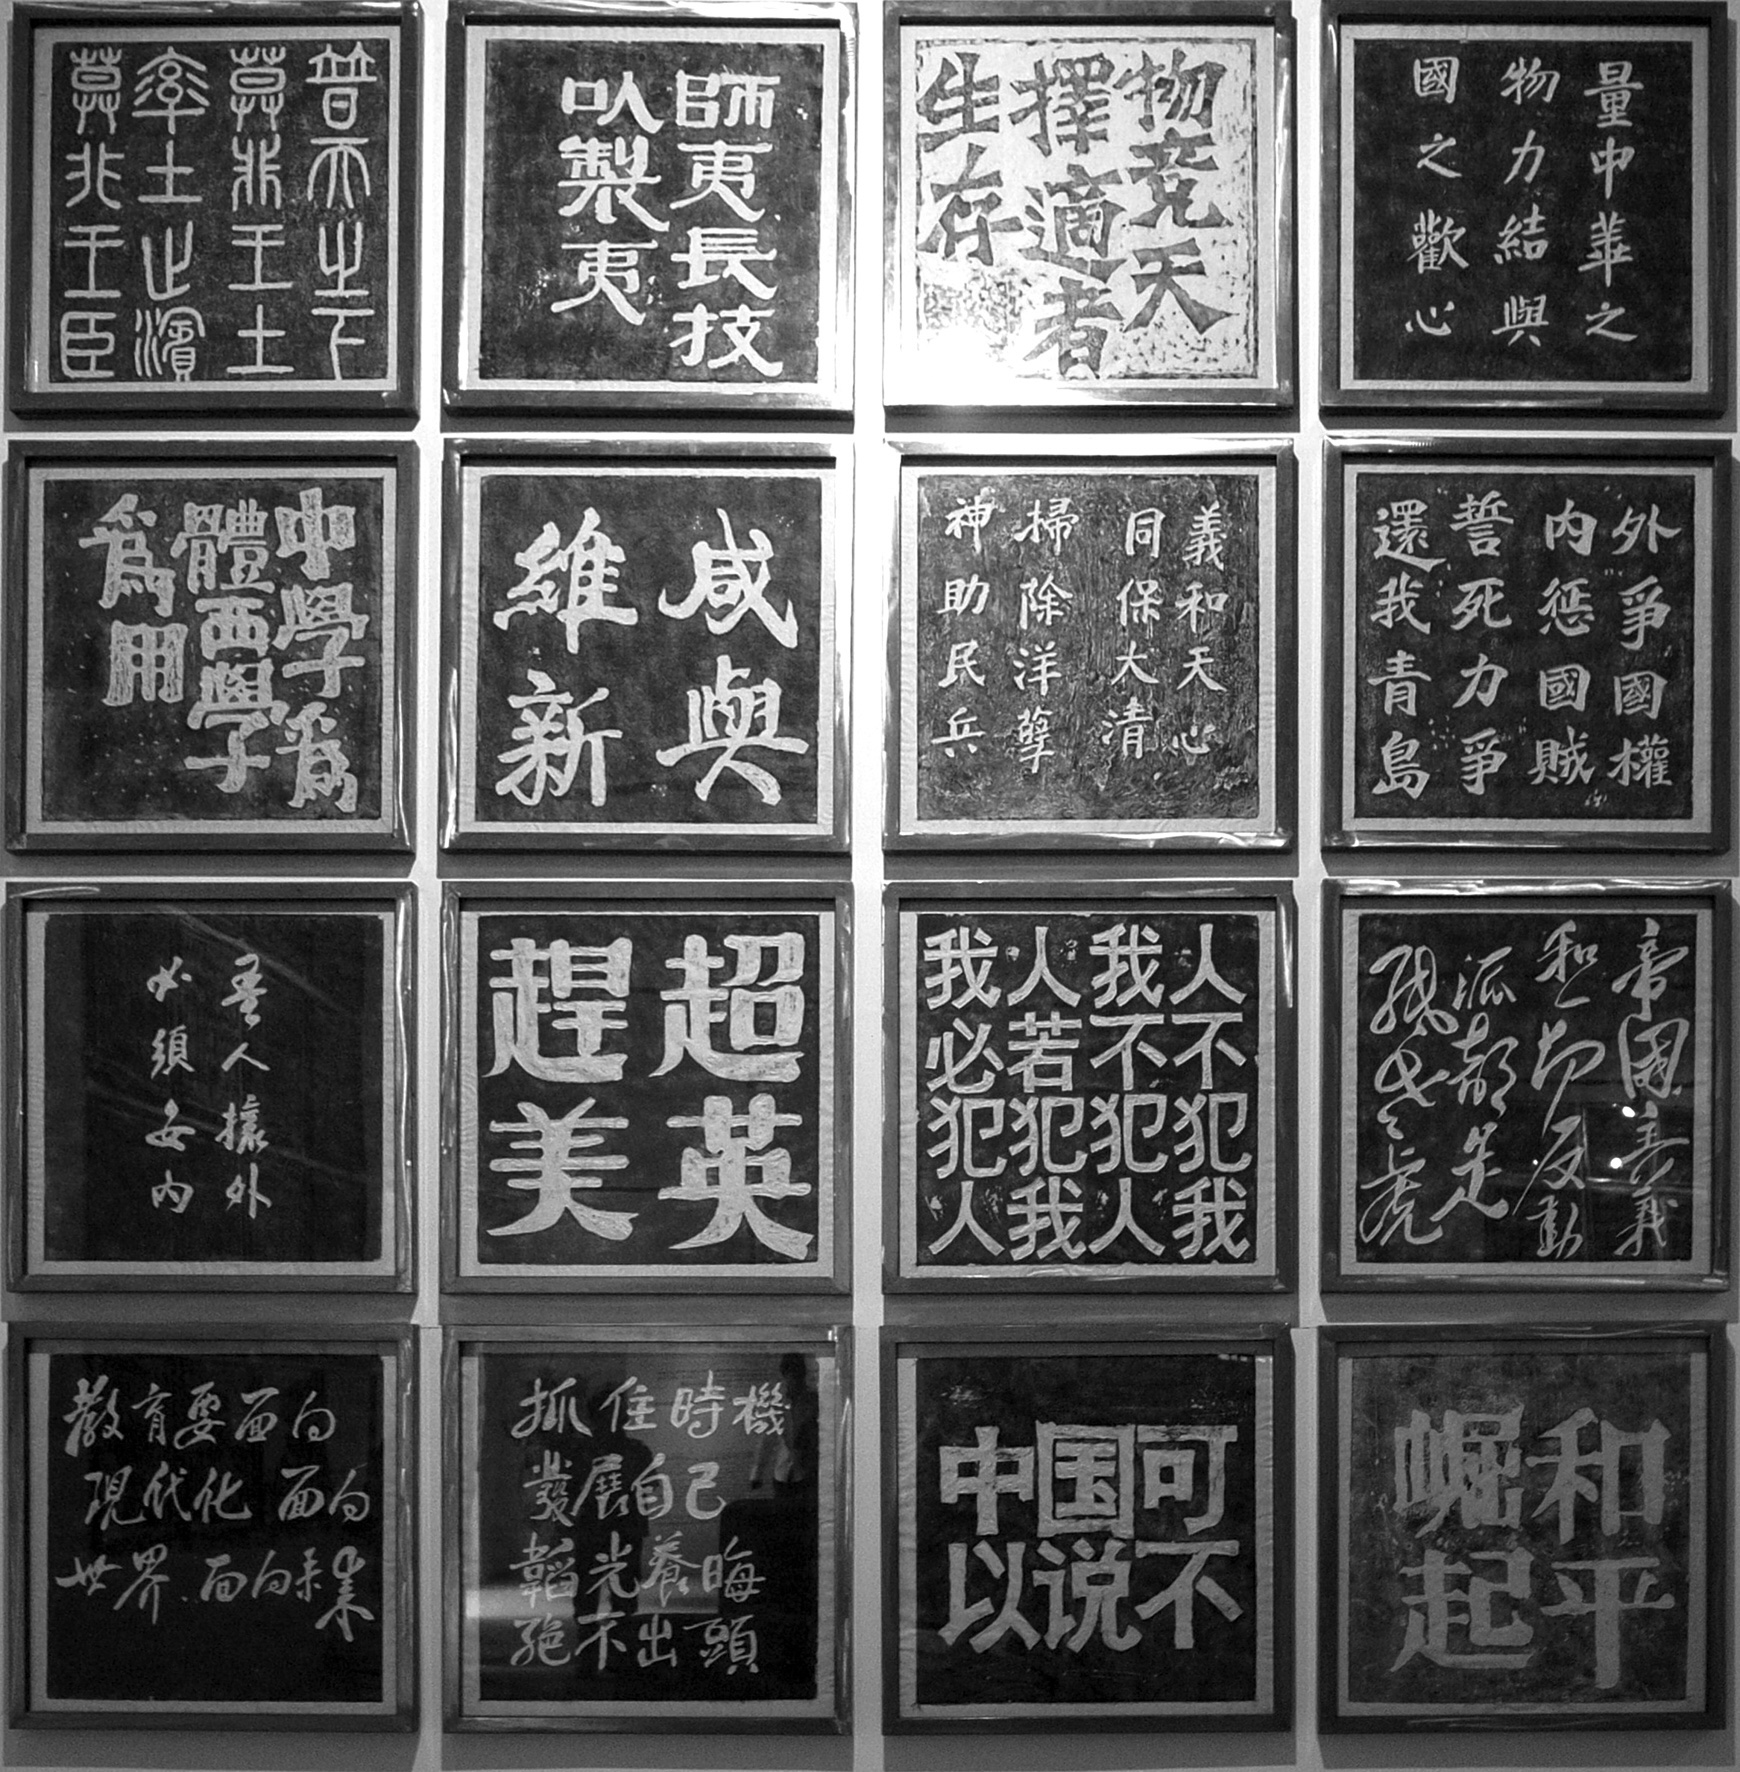 普天之下
莫非王土
率土之濱
莫非王臣
師夷長技
以製夷
物竞天
擇適者
生存
量中華之
物力結與
國之歡心
中學爲
體西學
爲用
咸與
維新
義和天心
同保大清
掃除洋孽
神助民兵
外爭國權
内惩國賊
誓死力爭
還我青島
吾人攘外
必須安内
超英
趕美
人不犯我
我不犯人
人若犯我
我必犯人
帝國主義
和一切反動
派都是
紙老虎
教育要面向
現代化面向
世界.面向未来
抓住時機
發展自己
韜光養晦
絕不出頭
中国可
以说不
和平
崛起